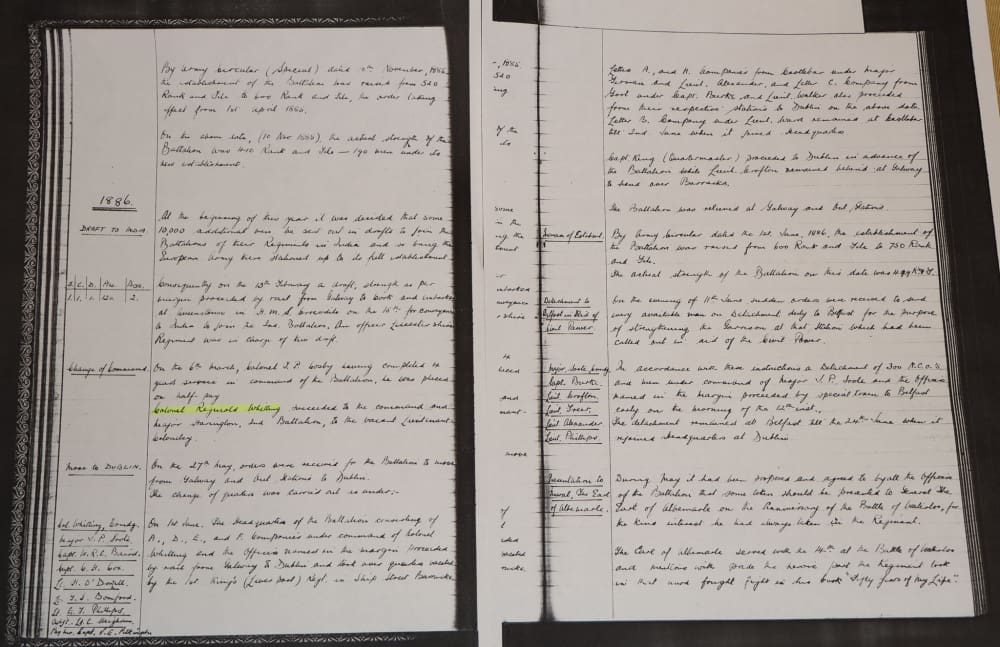 By Army Circular (Special) dated November, 1885,
the establishment of the Battalion was raised from 520
Rank and File to 600 Rank and File, the order taking
effect from 1st April 1885.
On the above date, (10 Nov 1885) the actual strength of the
Battalion was 410 Rank and File — 190 men under its
new establishment.
1886.
DRAFT TO INDIA
At the beginning of this year it was decided that some
10,000 additional men be sent out in drafts to join the
Battalions of their Regiments in India and so bring the
European Army there stationed up to its full establishment.
S. C. D. Pte.
1. 1. 1. 120. 2.
Consequently on the 13th February a draft, strength as per
margin proceeded by rail from Galway to Cork and embarked
at Queenstown in H.M.S. on the 14th for conveyance
to India to join the 2nd. Battalion. An officer Leicestershire
Regiment was in charge of this draft.
Change of Command.
On the 6th March, Colonel T.P. having completed
years service in command of the Battalion, he was placed
on half pay
Colonel Reginald Whitting succeeded to the command and
Major Farington, 2nd Battalion, to the vacant Lieutenant-
Colonelcy.
Move to DUBLIN.
On the 27th May, orders were received for the Battalion to move
from Galway and Out Stations to Dublin.
The change of quarters was carried out as under:-
Col. Whitting, Comdg.
Major J.P. Soole.
Capt. W.R.C. Baird.
Capt. C.H. Cox.
Lt. H. O'Donell.
Lt. T.S. Bomford.
Lt. E.F. Phillips.
Adjt. Lt. C.
Capt.
On 1st June. The Headquarters of the Battalion consisting of
A., D., E., and F. Companies under command of Colonel
Whitting and the Officers named in the margin proceeded
by route from Galway to Dublin and took over quarters vacated
by the 1st King's (Liverpool) Regt. in Ship Street Barracks.
Letters and H. Companies from Castlebar under Major
and Lieut. Alexander, and Letter C. Company from
under Capt. Burke and Lieut. Walker also proceeded
from their respective stations to Dublin on the above date.
Letter B. Company under Lieut. Ward remained at Castlebar
till 2nd June when it joined Headquarters
Capt. King (Quartermaster) proceeded to Dublin in advance of
the Battalion while Lieut. Crofton remained behind at Galway
to hand over Barracks.
The Battalion was relieved at Galway and Out Stations.
of Establmt.
By Army Circular dated the 1st. June, 1886, the establishment of
the Battalion was raised from 600 Rank and File to 750 Rank
and File.
The actual strength of the Battalion on this date was 499 R & F.
Detachment to
Belfast in Aid of
Civil Power.
On the evening of 11th June sudden orders were received to send
every available man on Detachment duty to Belfast for the purpose
of strengthening the Garrison at that Station which had been
called out in aid of the Civil Power.
Major Soole, Comdg.
Capt. Burke.
Lieut. Crofton.
Lieut.
Lieut. Alexander
Lieut. Phillips.
In accordance with these instructions a Detachment of 300 N.C.O's
and men under command of Major J.P. Soole and the Officers
named in the margin proceeded by special train to Belfast
early on the morning of the 12th inst.,
The detachment remained at Belfast till the 24th June when it
rejoined Headquarters at Dublin.
Presentation to
General, The Earl
of Albemarle.
During May it had been proposed and agreed to by all the Officers
of the Battalion that some token should be presented to General The
Earl of Albemarle on the Anniversary of the Battle of Waterloo, for
the kind interest he had always taken in the Regiment.
The Earl of Albemarle served with the 14th at the Battle of Waterloo
and mentions with pride the heroic part the Regiment took
in that hard fought fight in his book "Fifty Years of My Life".